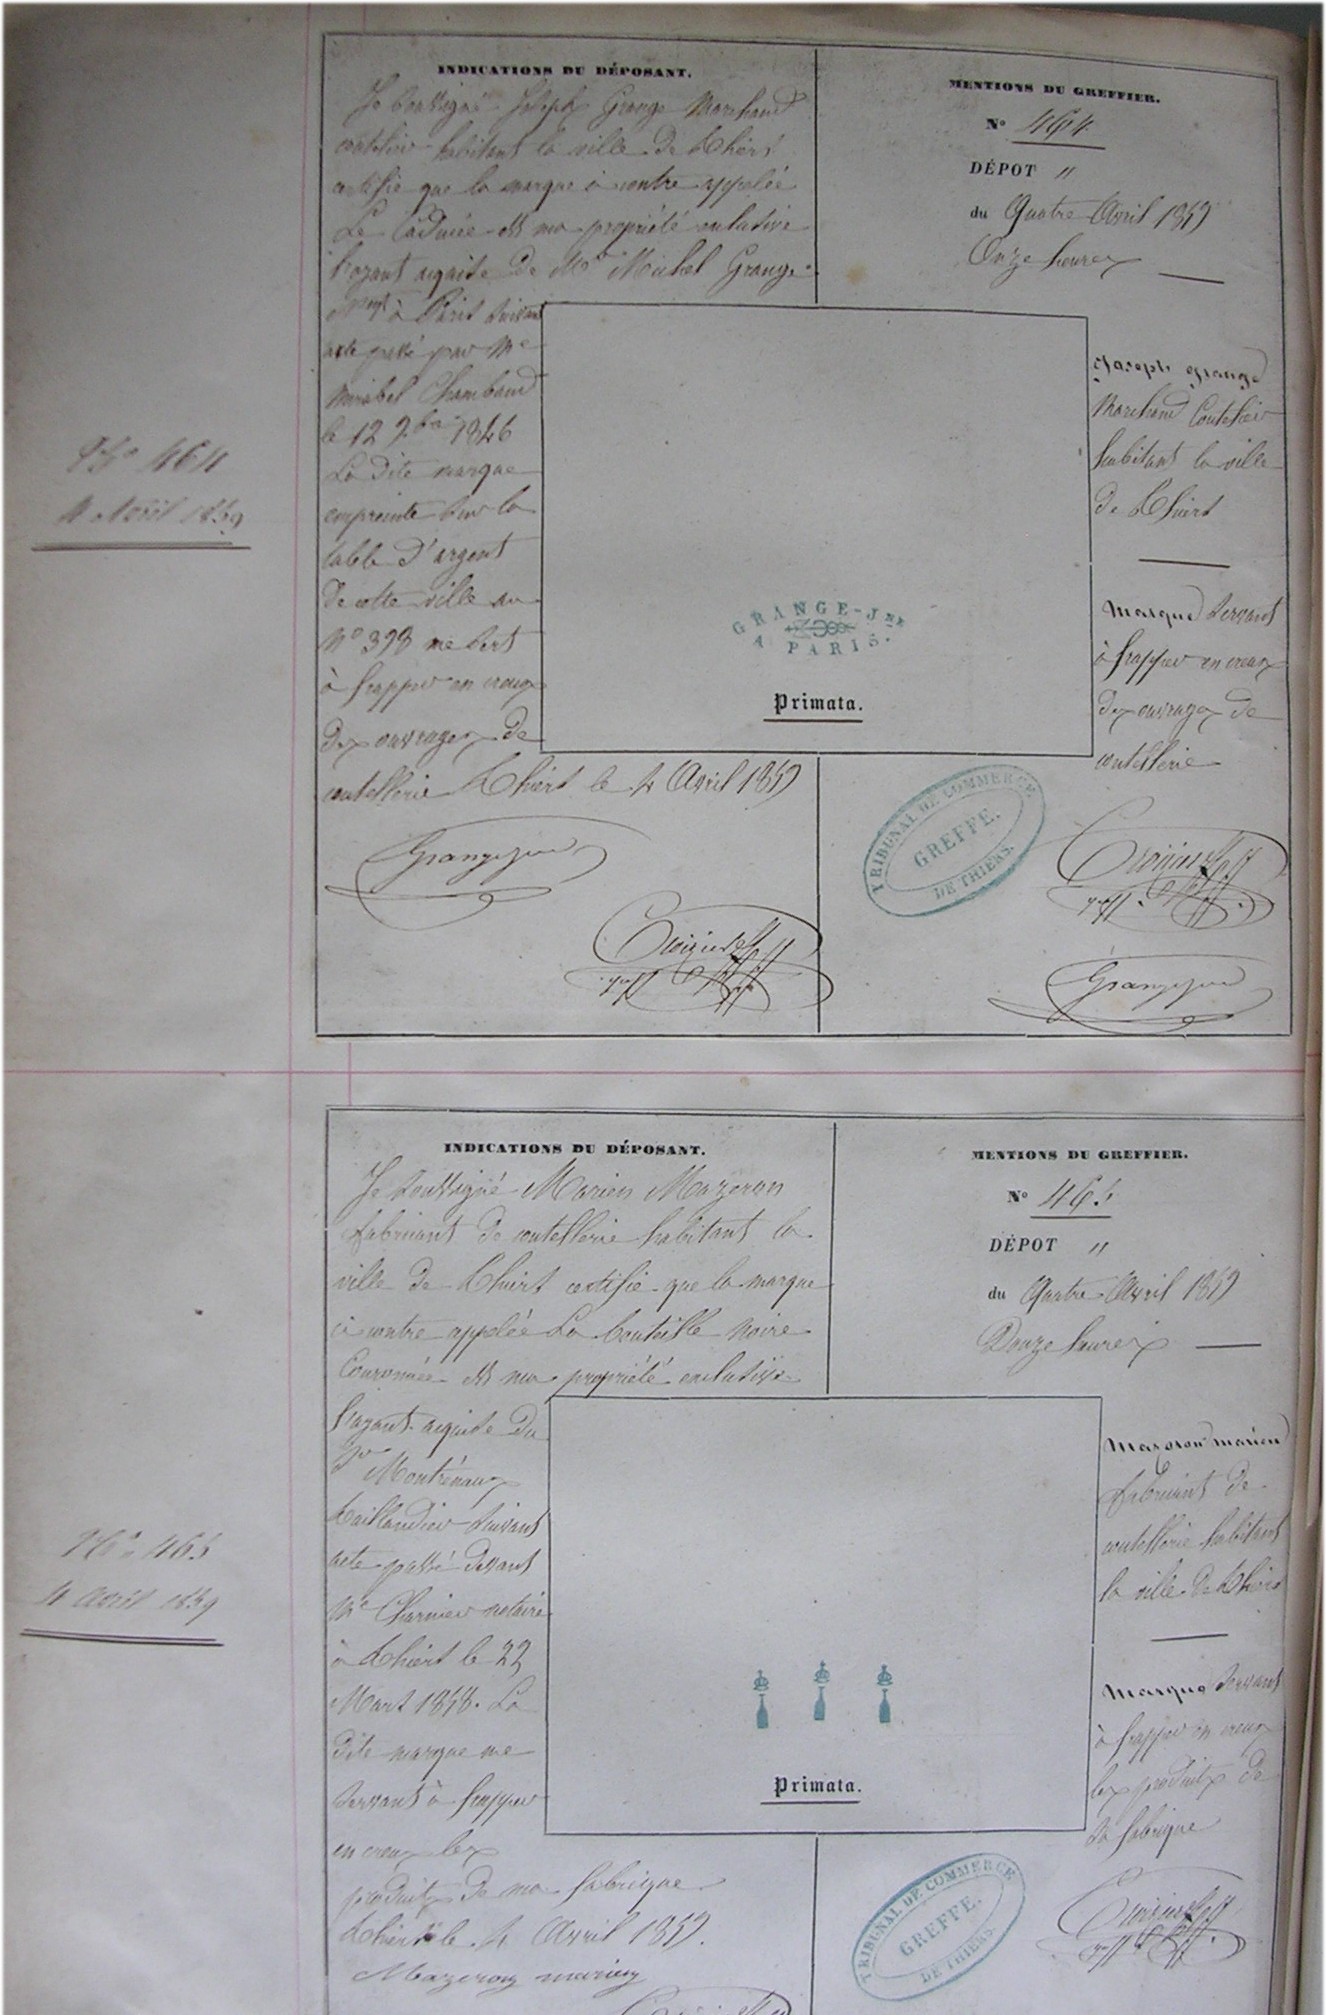 INDICATIONS DU DÉPOSANT.
Je soussigné Joseph Grange Marchand
coutelier habitant la ville de Thiers
certifie que la marque ci contre appelée
Le Caducée est ma propriété exclusive
l'ayant acquise de Mr Michel Grange
à Paris suivant
acte passé par Me
Mirabel Chambaud
le 12 9bre 1846
La dite marque
empreinte sur la
table d'argent
de cette ville au
No 398 me sert
à frapper en creux
des ouvrages de
coutellerie Thiers le 4 Avril 1859
Grangejeune
MENTIONS DU GREFFIER.
No 464
DÉPOT "
du Quatre Avril 1859
Onze heures
Joseph Grange
Marchand Coutelier
habitant la ville
de Thiers
Marque servant
à frapper en creux
des ouvrages de
coutellerie
GRANGE-JNE
A PARIS.
Primata.
TRIBUNAL DE COMMERCE
GREFFE.
DE THIERS.
Grangejeune
No 464
4 Avril 1859
INDICATIONS DU DÉPOSANT.
Je soussigné Marien Mazeron
fabricant de coutellerie habitant la
ville de Thiers certifie que la marque
ci contre appelée La bouteille noire
Couronnée est ma propriété exclusive
l'ayant acquise du
Sr
taillandier suivant
acte passé devant
Me Charnier notaire
à Thiers le 23
Mars 1858. La
dite marque me
servant à frapper
en creux les
produits de ma fabrique
Thiers le 4 Avril 1859.
Mazeron marien
MENTIONS DU GREFFIER.
No 465
DÉPOT "
du Quatre Avril 1859
Douze heures
Mazeron marien
fabricant de
coutellerie habitant
la ville de Thiers
Marque servant
à frapper en creux
les produits de
sa fabrique
Primata.
TRIBUNAL DE COMMERCE
GREFFE.
DE THIERS.
No 465
4 avril 1859